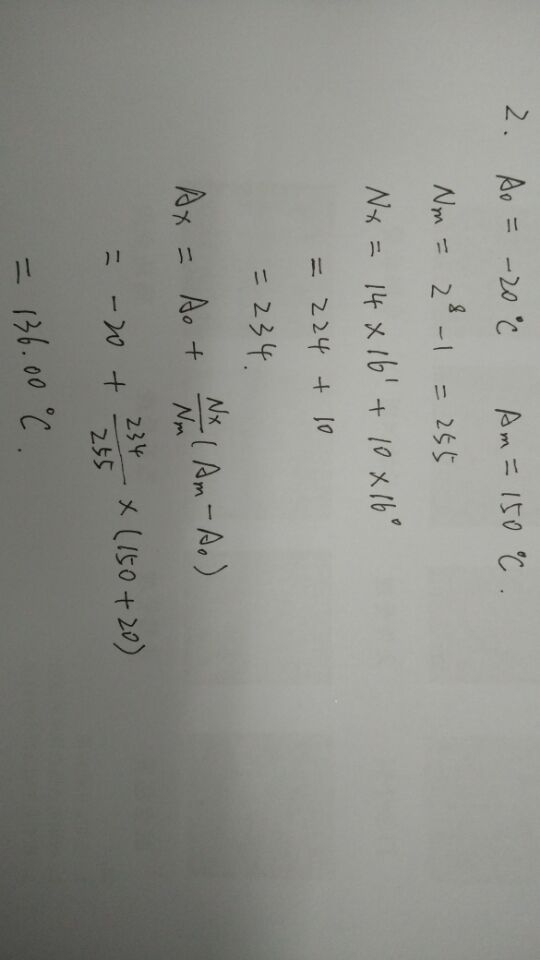 2. A₀ = -20°C Aₘ = 150°C.
Nₘ = 2⁸ - 1 = 255
Nₓ = 14 × 16¹ + 10 × 16⁰
= 224 + 10
= 234.
Aₓ = A₀ + Nₓ/Nₘ (Aₘ - A₀)
= -20 + 234/255 × (150 + 20)
= 136.00°C.